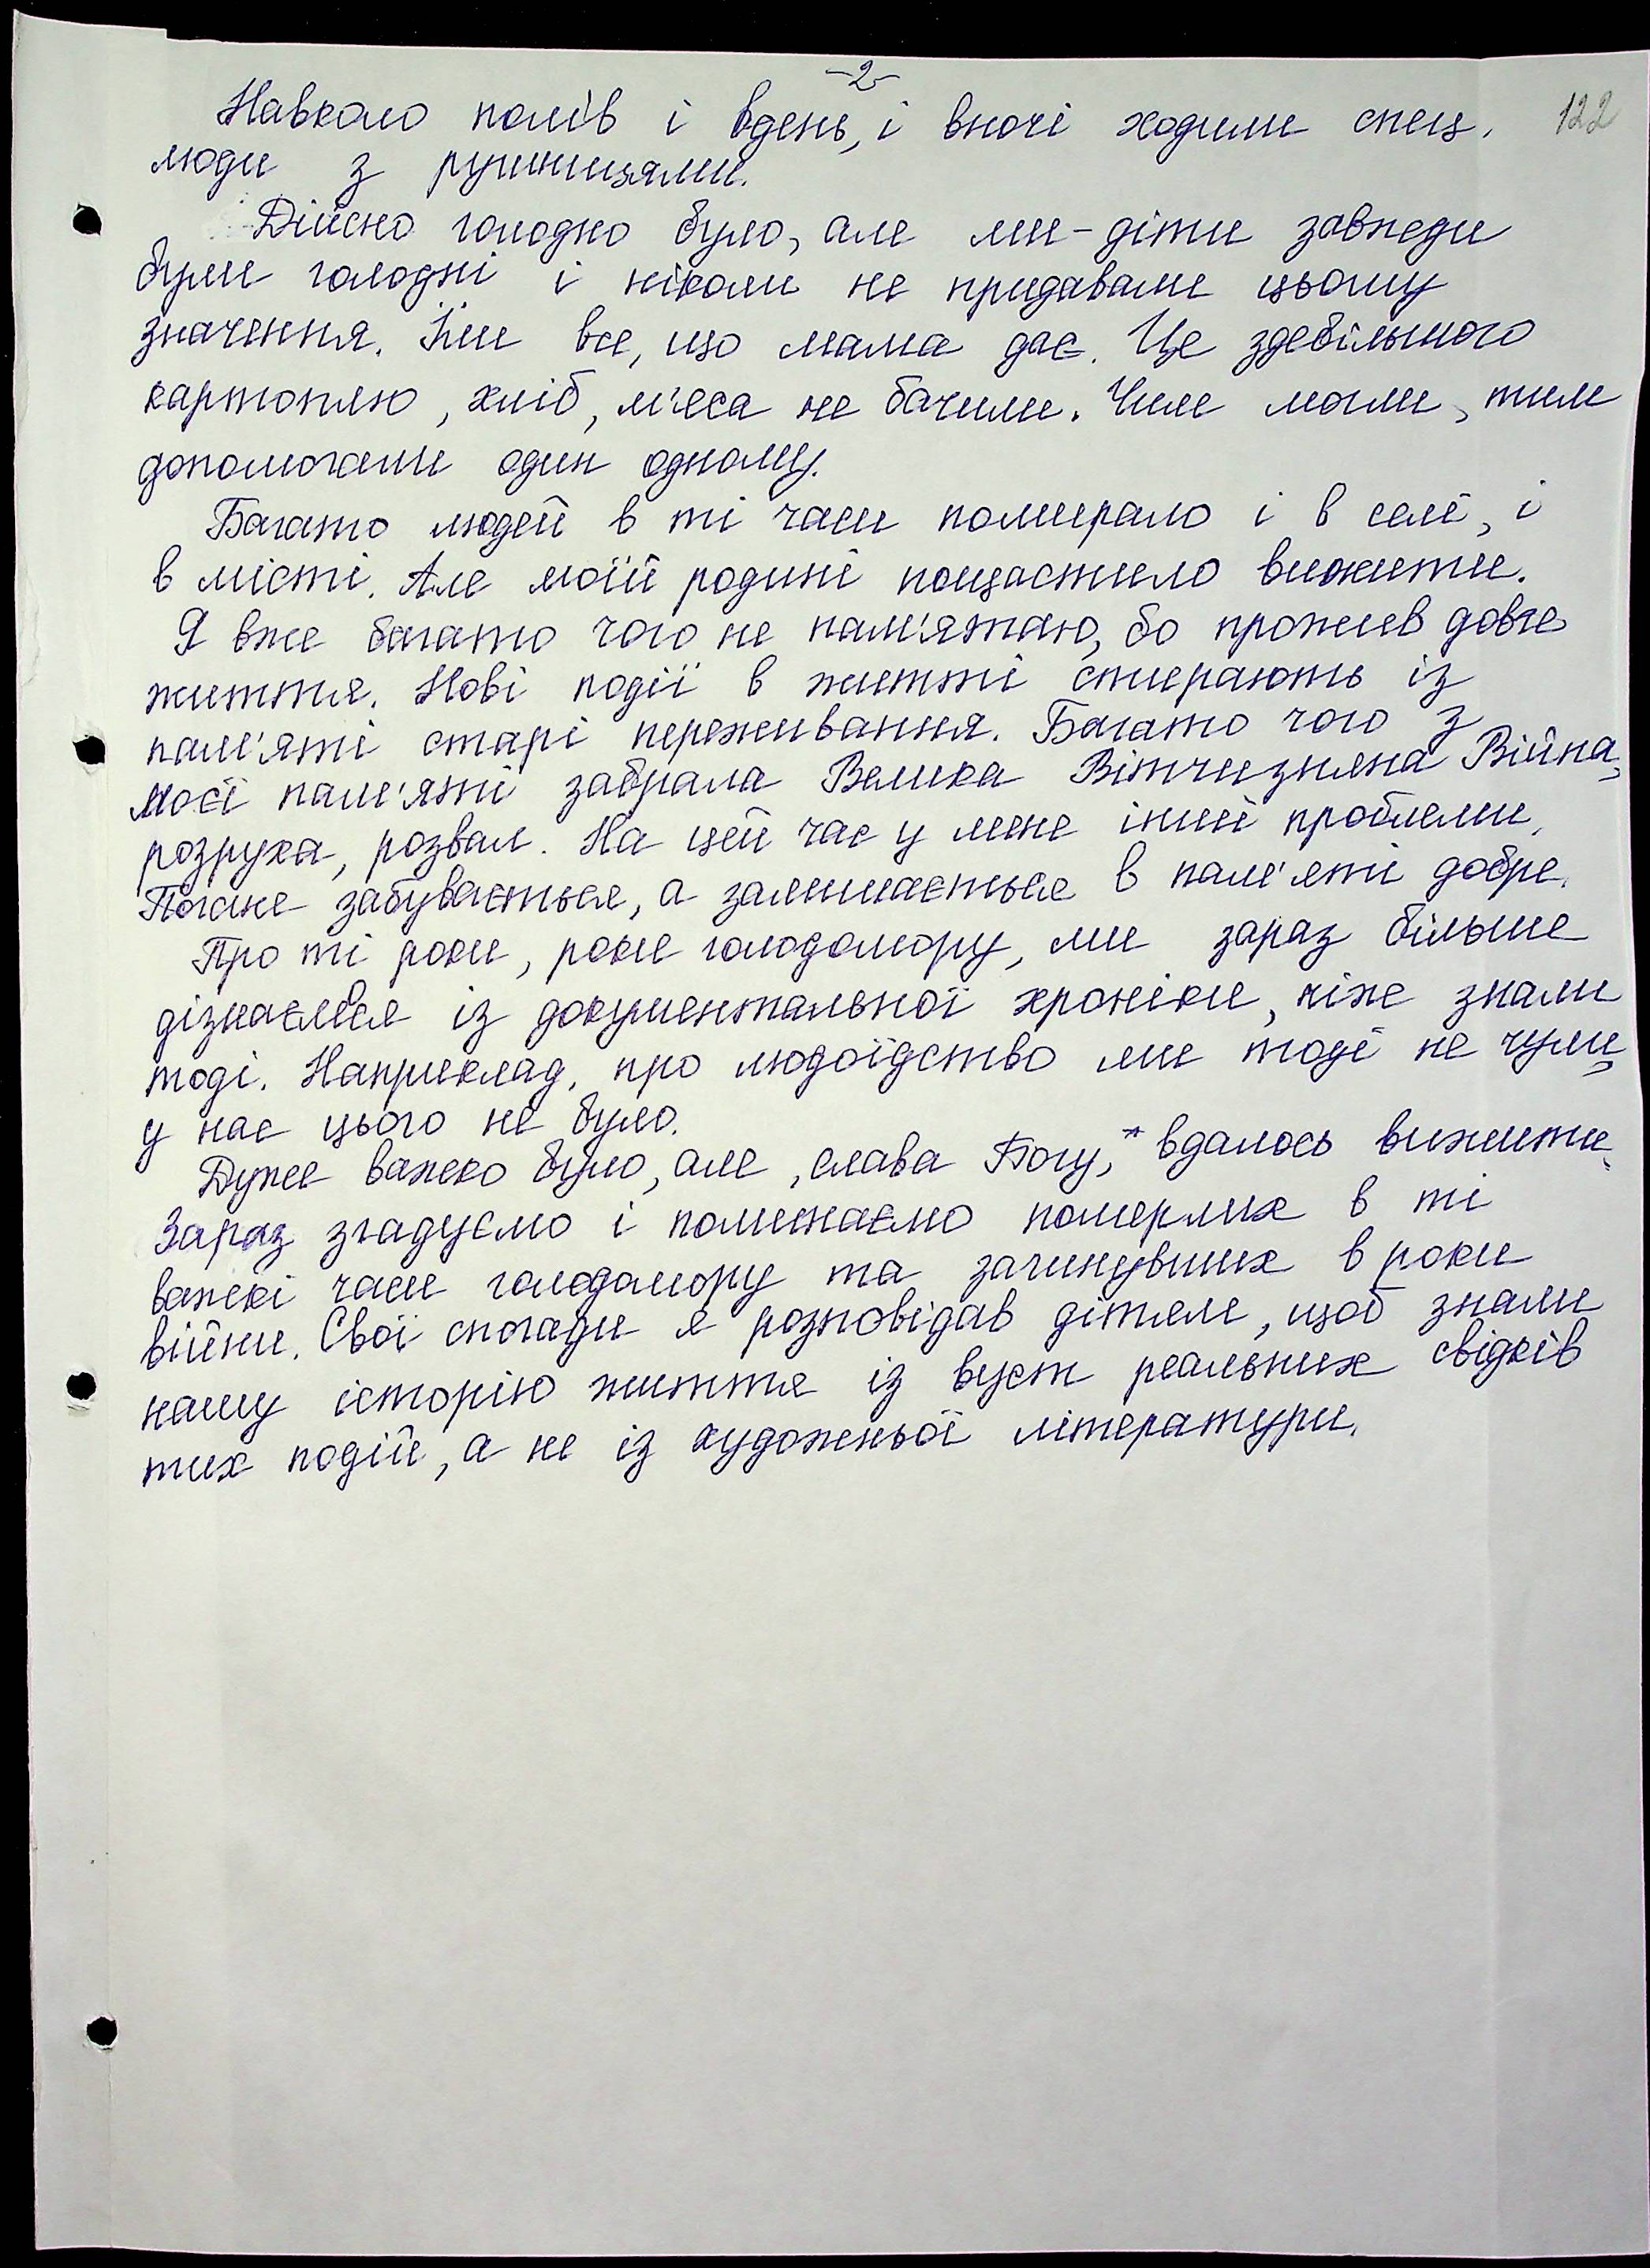 -2-
122
Навколо полів і вдень, і вночі ходили спец.
люди з рушницями.
Дійсно голодно було, але ми-діти завжди
були голодні і ніколи не придавали цьому
значення. Їли все, що мама дає. Це здебільшого
картоплю, хліб, м'яса не бачили. Чим могли, тим
допомогали один одному.
Багато людей в ті часи помирало і в селі, і
в місті. Але моїй родині пощастило вижити.
Я вже багато чого не пам'ятаю, бо прожив довге
життя. Нові події в житті стирають із
пам'яті старі переживання. Багато чого з
моєї пам'яті забрала Велика Вітчизняна Війна,
розруха, розвал. На цей час у мене інші проблеми.
Погане забувається, а залишається в пам'яті добре.
Про ті роки, роки голодомору, ми зараз більше
дізнаємося із документальної хроніки, ніже знали
тоді. Наприклад, про людоїдство ми тоді не чули,
у нас цього не було.
Дуже важко було, але, слава Богу, вдалось вижити.
Зараз згадуємо і поминаємо померлих в ті
важкі часи голодомору та загинувших в роки
війни. Свої спогади я розповідав дітям, щоб знали
нашу історію життя із вуст реальних свідків
тих подій, а не із художньої літератури.